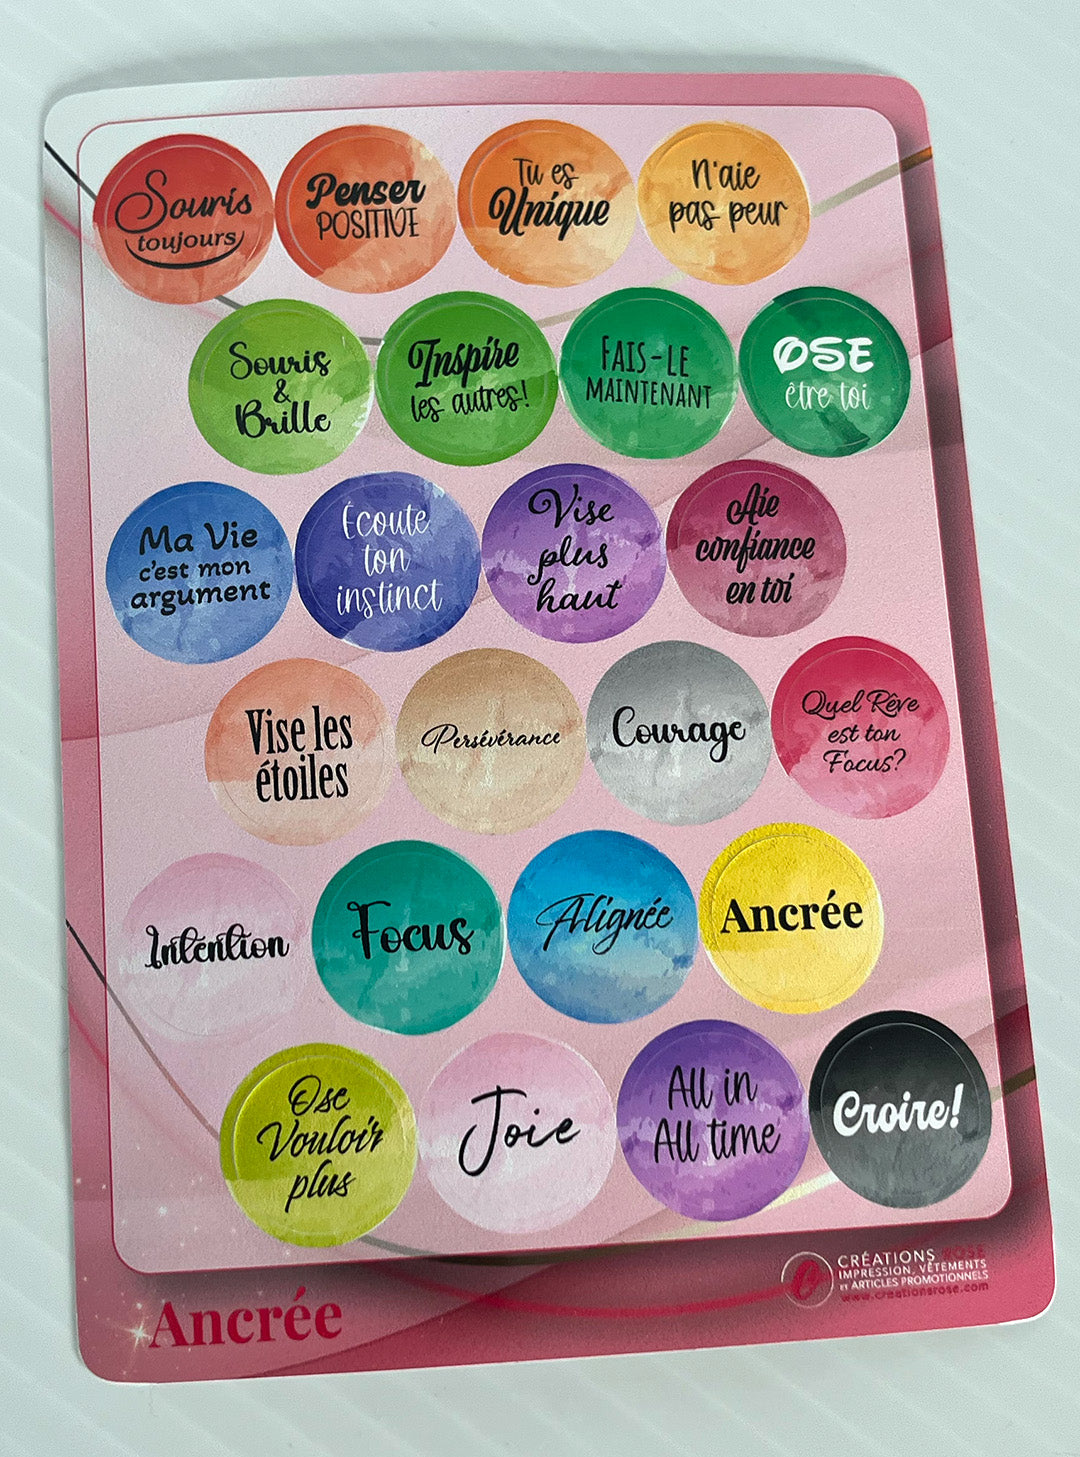 Souris
toujours
Penser
POSITIVE
Tu es
Unique
N'aie
pas peur
Souris
&
Brille
Inspire
les autres!
FAIS-LE
MAINTENANT
OSE
être toi
Ma Vie
c'est mon
argument
Écoute
ton
instinct
Vise
plus
haut
Aie
confiance
en toi
Vise les
étoiles
Persévérance
Courage
Quel Rêve
est ton
Focus?
Intention
Focus
Alignée
Ancrée
Ose
Vouloir
plus
Joie
All in
All time
Croire!
Ancrée
CRÉATIONS ROSE
IMPRESSION, VÊTEMENTS
ET ARTICLES PROMOTIONNELS
www.creationsrose.com